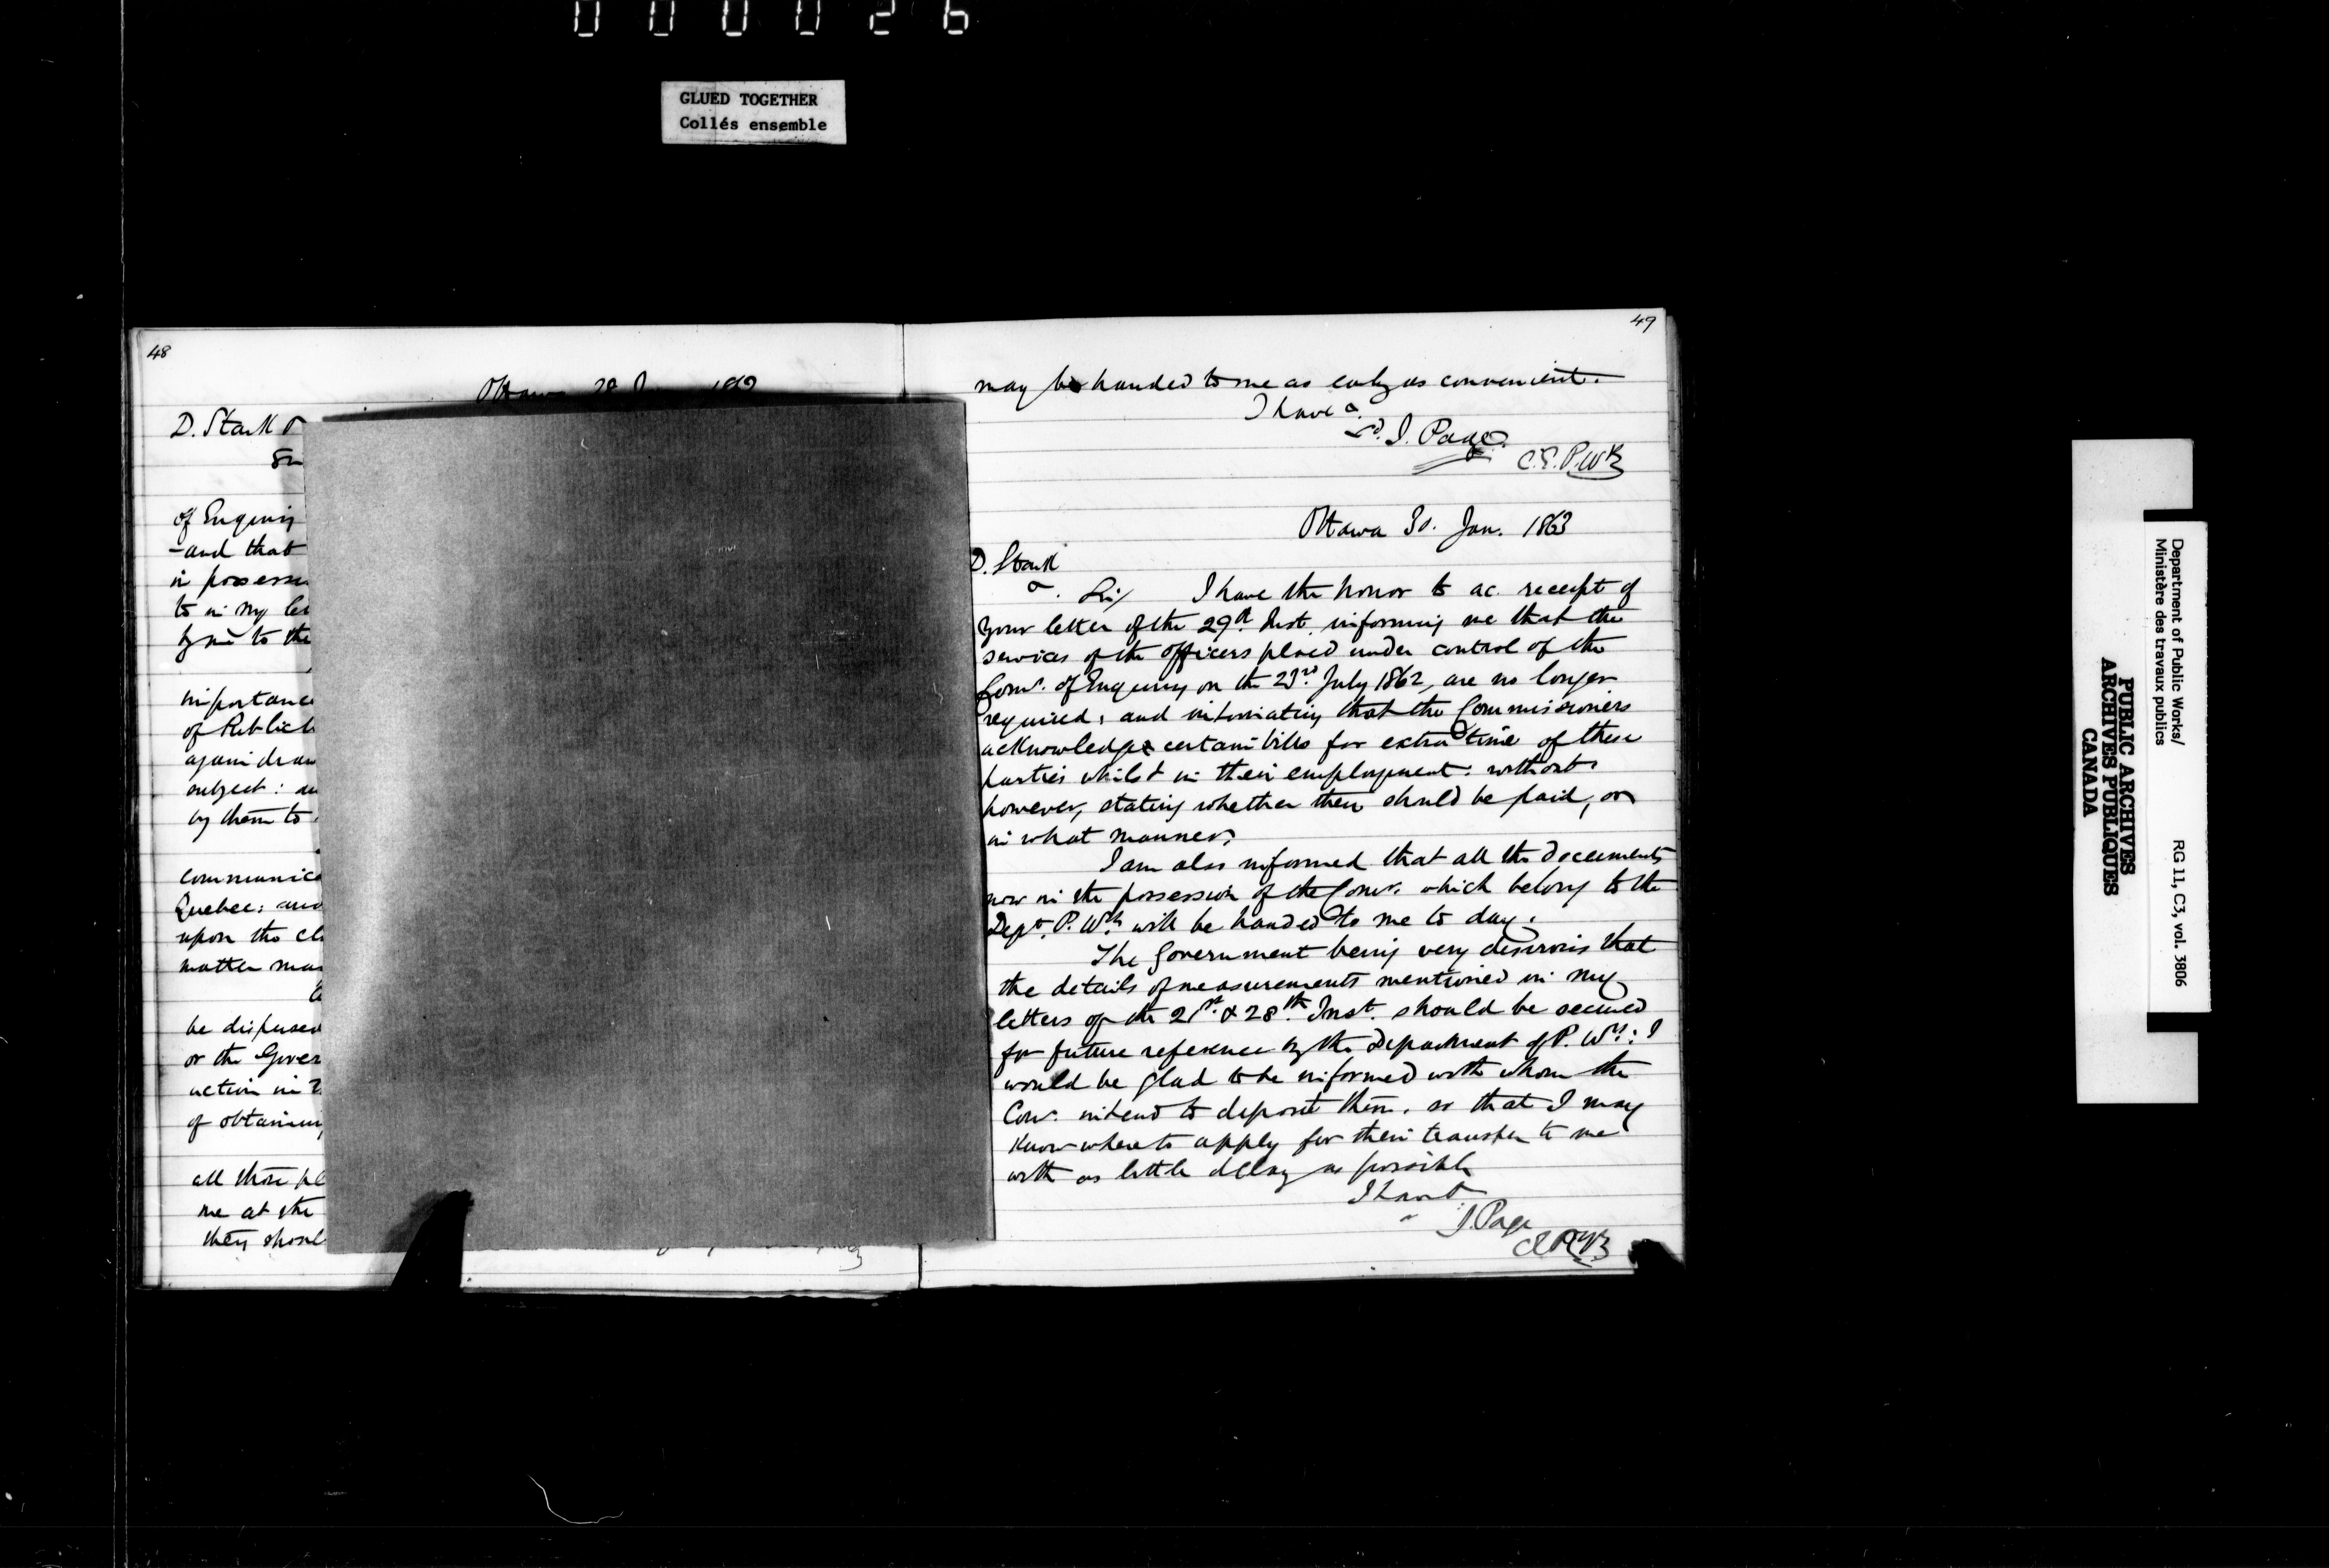 000026
GLUED TOGETHER
Collés ensemble
48
Ottawa 28
D. Stark
of Enquiry
-and that
in
to in my
by me to the
importance
of Public
again
subject:
by them to
Quebec: and
upon the
matter
be
or the
action in
of obtaining
all those
me at the
they
49
may be handed to me as early as convenient.
I have &.
Sd. J. Page.
C.E.P.Wks
Ottawa 30. Jan. 1863
D. Stark
&. Sir/ I have the honor to ac. receipt of
your letter of the 29th. Inst. informing me that the
services of the officers placed under control of the
Comrs. of Enquiry on the 23rd. July 1862, are no longer
required, and intimating that the Commissioners
acknowledge certain bills for extra time of these
parties whilst in their employment: without
however, stating whether these should be paid, or
in what manner.
I am also informed that all the documents
now in the possession of the Comrs. which belong to the
Dept. P. Wks will be handed to me to day.
The Government being very desirous that
the details of measurements mentioned in my
letters of the 21st. & 28th. Inst. should be secured
for future reference by the Department of P. Wks: I
would be glad to be informed with whom the
Comrs. intend to deposit them. so that I may
know where to apply for their transfer to me
with as little delay as possible
I have &
J. Page
C.E.P.Wks
Department of Public Works/
Ministère des travaux publics
RG 11, C3, vol. 3806
PUBLIC ARCHIVES
ARCHIVES PUBLIQUES
CANADA